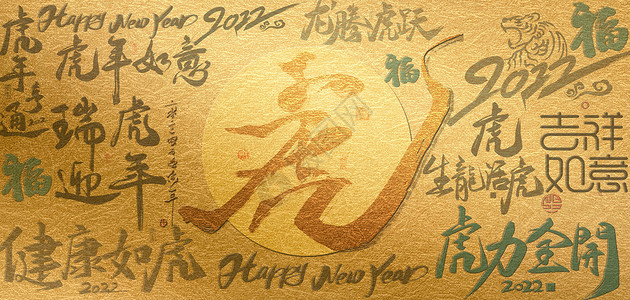 Happy New Year 2022
龙腾虎跃
2022
福
虎年亨通
虎年如意
福
虎
瑞虎迎年
二零二二年
虎
生龍活虎
吉祥如意
福
健康如虎
2022
Happy New Year
虎力全開
2022